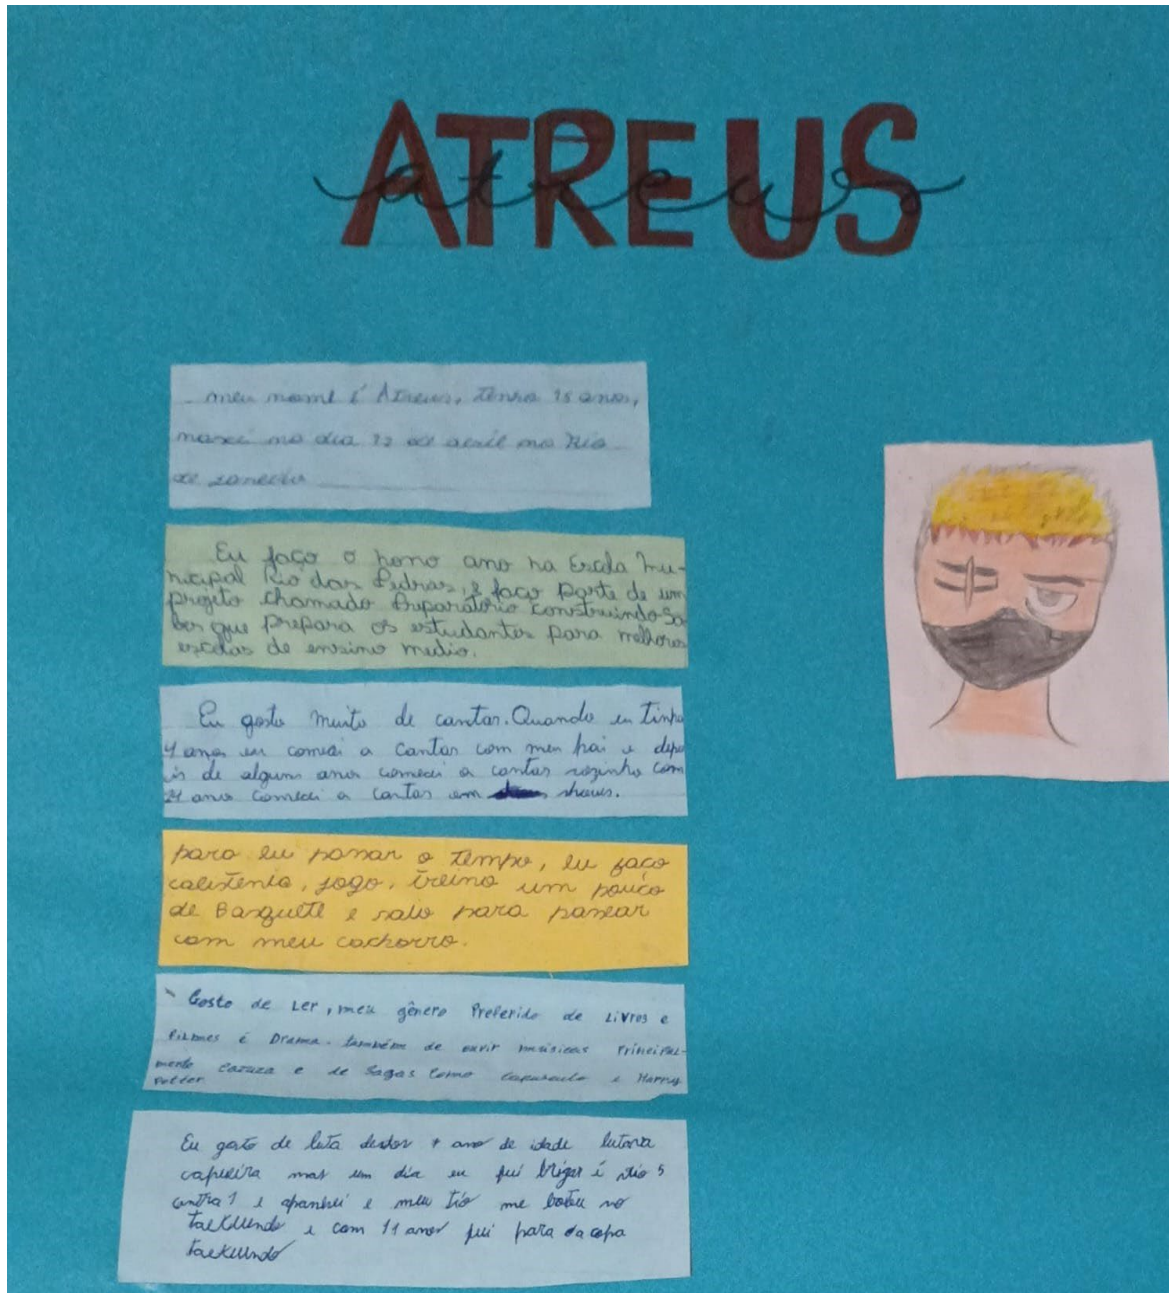 ATREUS
atreus
meu nome é Atreus, tenho 15 anos,
nasci no dia 12 de abril no Rio
de Janeiro
Eu faço o nono ano na Escola Mu-
nicipal Rio das Pedras, e faço parte de um
projeto chamado Preparatório Construindo Sa-
ber que prepara os estudantes para melhores
escolas de ensino medio.
Eu gosto muito de cantar. Quando eu tinha
anos eu comecei a cantar com meu pai e depo
is de alguns anos comecei a cantar sozinho com
anos comecei a cantar em shows.
para eu passar o tempo, eu faço
calistenia, jogo, treino um pouco
de Basquete e saio para passear
com meu cachorro.
Gosto de Ler, meu gênero Preferido de Livros e
filmes é Drama. também de ouvir músicas Principal-
mente Cazuza e de Sagas como Crepúsculo e Harry
Potter
Eu gosto de luta desdos 7 ano de idade lutava
capueira mas um dia eu fui brigar é veio 5
contra 1 e apanhei e meu tio me botou no
taekuendo e com 11 anos fui para da copa
taekuendo